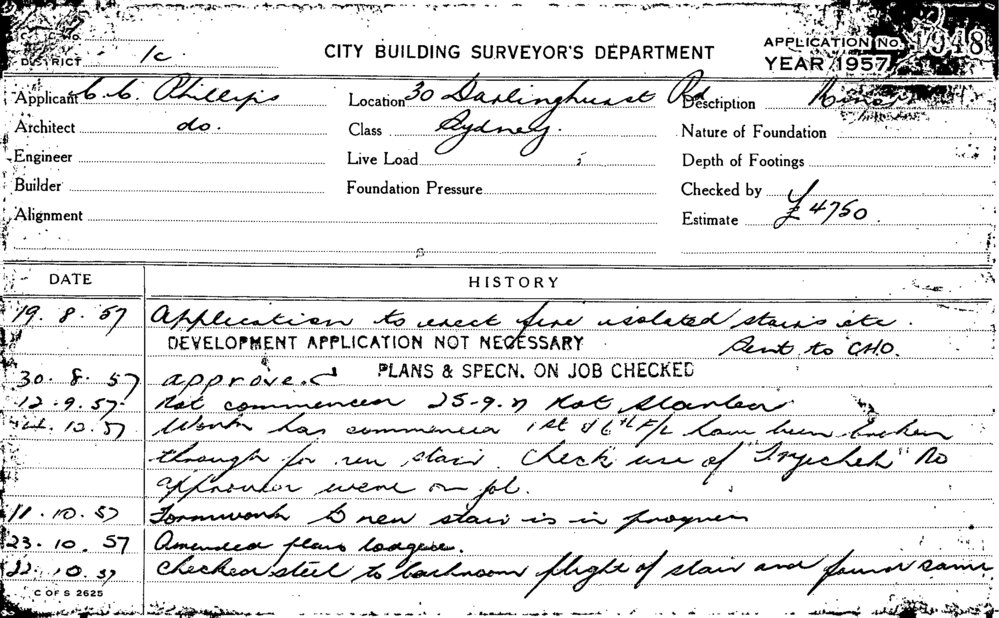 DISTRICT 1c CITY BUILDING SURVEYOR'S DEPARTMENT APPLICATION No. 1948
YEAR 1957
Applicant C. C. Phillips Location 30 Darlinghurst Rd Description
Architect do. Class Sydney. Nature of Foundation
Engineer Live Load Depth of Footings
Builder Foundation Pressure Checked by
Alignment Estimate £4750
DATE HISTORY
19. 8. 57 Application to erect fire isolated stairs etc.
DEVELOPMENT APPLICATION NOT NECESSARY Sent to C.H.O.
30. 8. 57 approved PLANS & SPECN. ON JOB CHECKED
12. 9. 57 Not commenced 25-9-7 Not Started
10. 57 Work has commenced 1st & 6th F/L have been broken
through for new stair. Check use of " No
approved were on job.
11. 10. 57 Formwork to new stair is in progress
23. 10. 57 Amended plans lodged.
22. 10. 57 Checked steel to bathroom flight of stair and found same
C OF S 2625